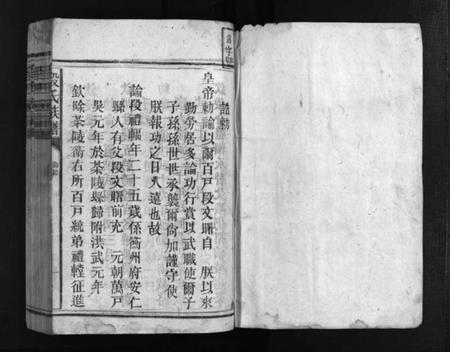 誥勅
皇帝勅諭以爾百戶段文聃自　朕以來
勤勞居多論功行賞以武職使爾子
子孫孫世世承襲爾尚加謹守使
朕報功之日久遠也故
諭段禮輻年二十五歲係衡州府安仁
縣人有父段文聃前充　元朝萬戶
吳元年於茶陵歸附洪武元年
欽除茶陵衛右所百戶統弟禮輊征進
段氏族譜